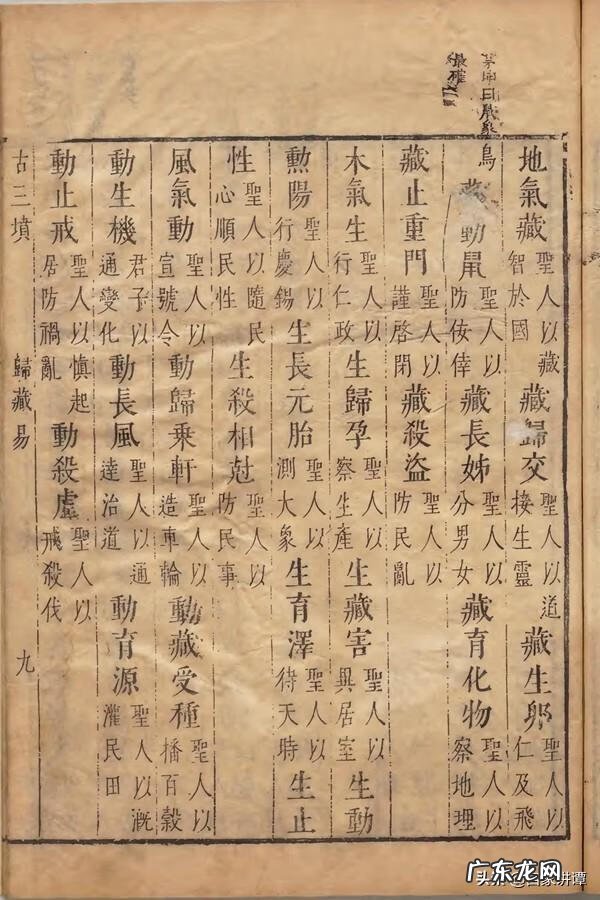 曰
最確
地氣藏聖人以藏智於國藏歸交聖人以道接生靈藏生卵聖人以仁及飛
鳥藏動鼠聖人以防佞倖藏長姊聖人以分男女藏育化物聖人以察地理
藏止重門聖人以謹啓閉藏殺盜聖人以防民亂
木氣生聖人以行仁政生歸孕聖人以察生產生藏害聖人以異居室生動
勳陽聖人以行慶錫生長元胎聖人以測大象生育澤聖人以待天時生止
性聖人以隨民心順民性生殺相尅聖人以防民事
風氣動聖人以宣號令動歸乘軒聖人以造車輪動藏受種聖人以播百穀
動生機君子以通變化動長風聖人以通達治道動育源聖人以溉灌民田
動止戒聖人以慎起居防禍亂動殺虛聖人以戒殺伐
古三墳 歸藏易 九
广东龙网